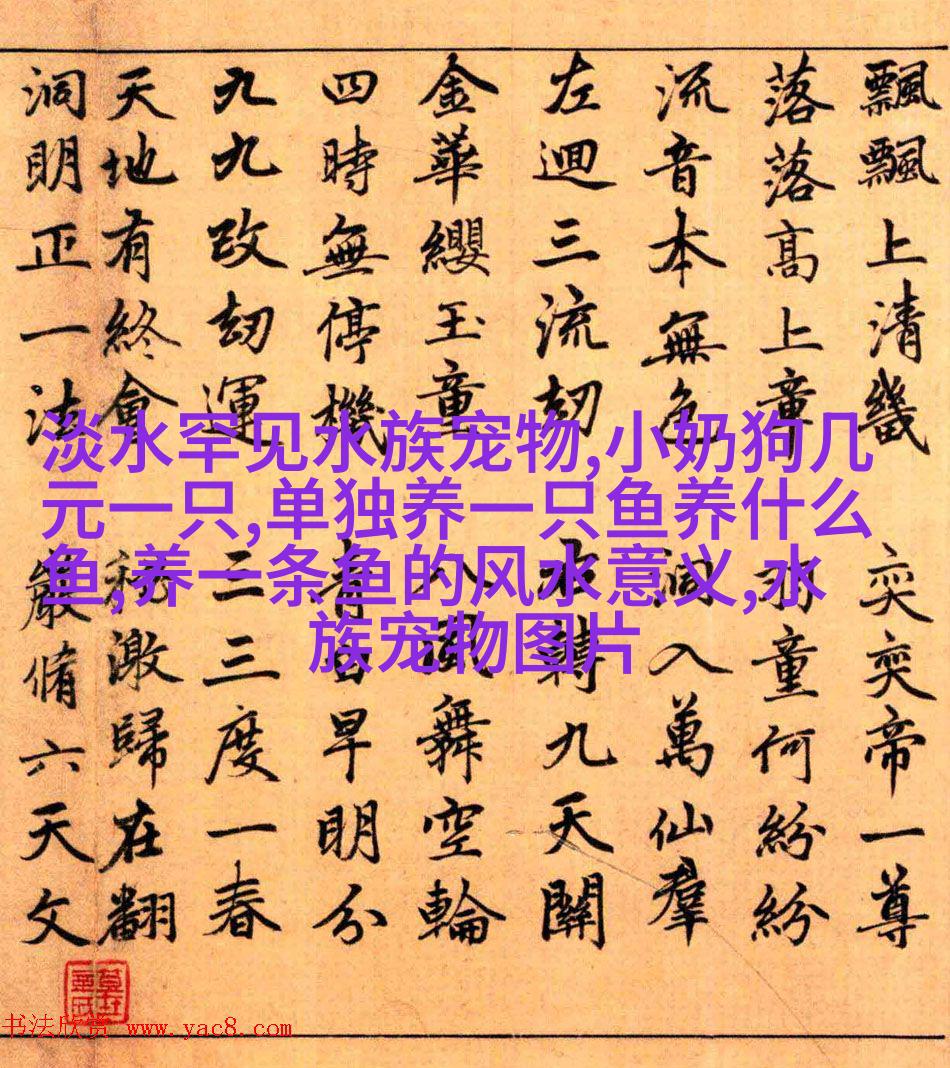 飄飄上清畿 奕奕帝一尊
落落高上章 羽童何紛紛
流音本無色 洞入萬仙羣
左迴三流刼 右轉九天關
金華纓玉童 八風舞空輪
四時無停機 青 早明分
九九改刼運 三三度一春
天地有終會 激歸在翻
洞明正一法 嚴脩六天文
淡水罕见水族宠物,小奶狗几
元一只,单独养一只鱼养什么
鱼,养一条鱼的风水意义,水
族宠物图片
书法欣赏 www.yac8.com